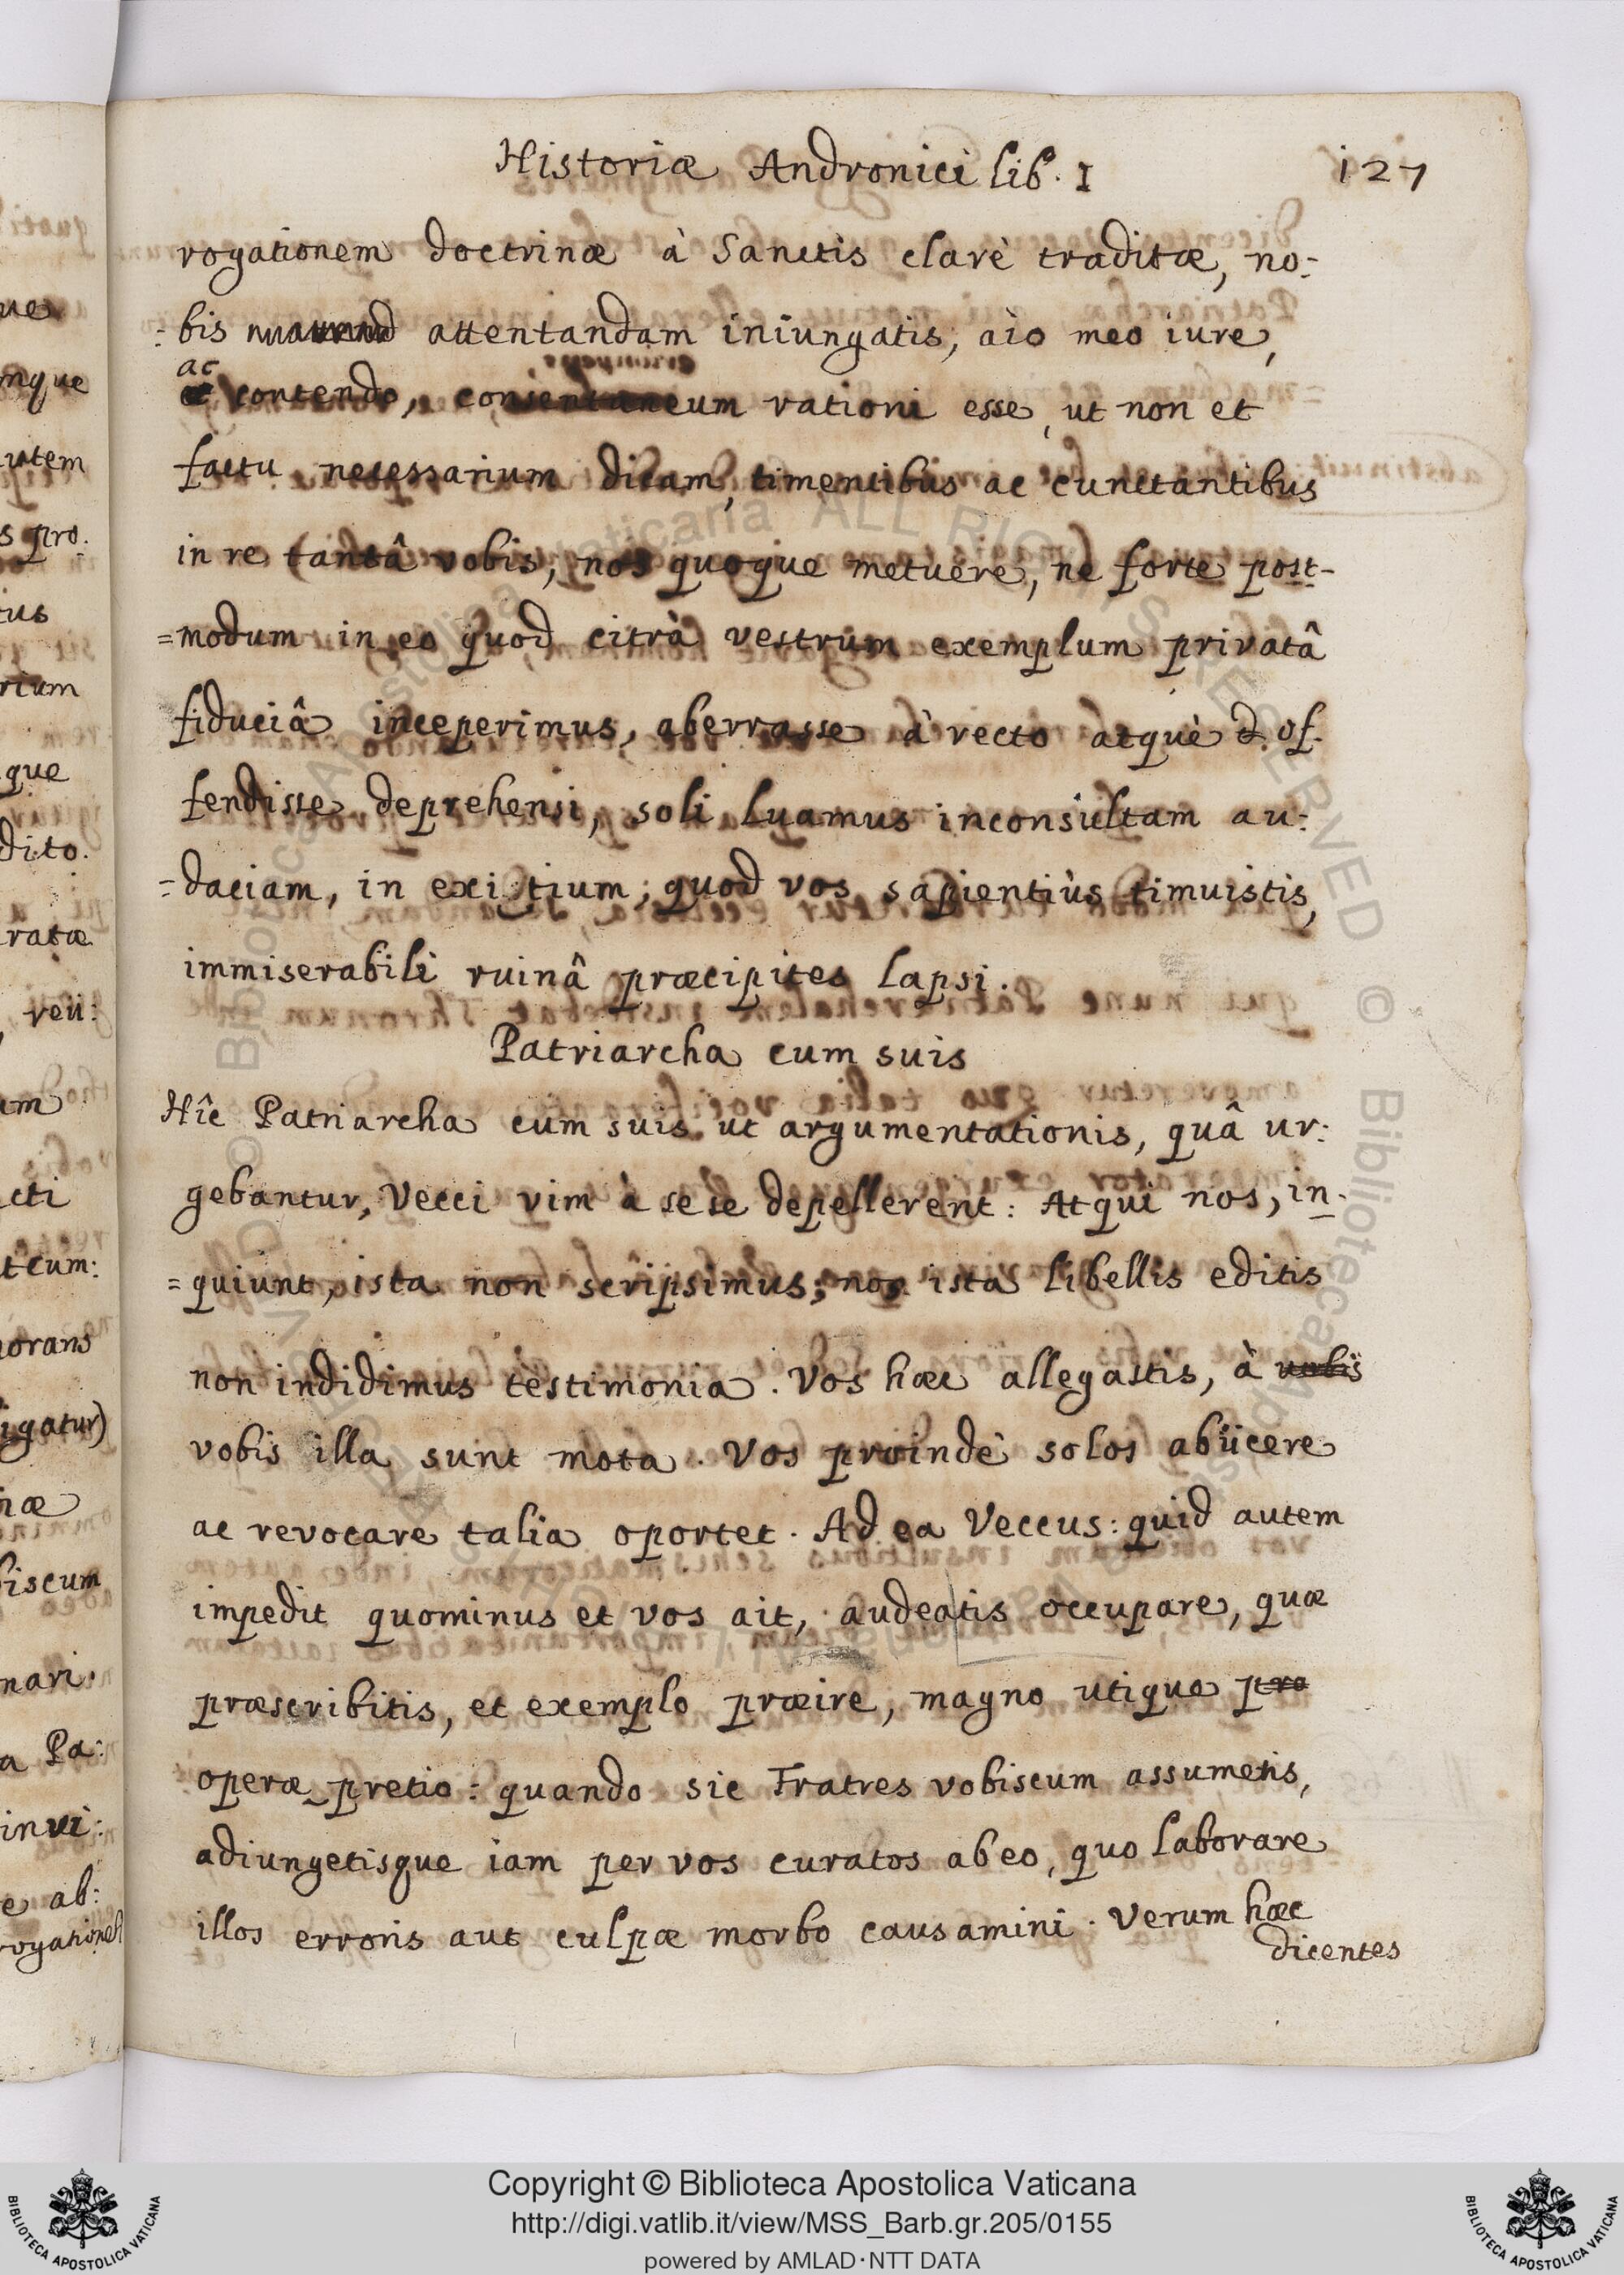 Historiæ Andronici lib. I 127
rogationem doctrinæ à Sanctis clarè traditæ, no:
:bis attentandam iniungatis, aio meo iure,
ac
contendo, consentaneum rationi esse, ut non et
factu necessarium dicam, timentibus ac cunctantibus
in re tantâ vobis, nos quoque metuere, ne forte post-
=modum in eo quod citrà vestrum exemplum privatâ
fiduciâ inceperimus, aberrasse à recto atquè of-
fendisse deprehensi, soli luamus inconsultam au:
=daciam, in exitium, quod vos sapientiùs timuistis,
immiserabili ruinâ præcipites lapsi.
Patriarcha cum suis
Hîc Patriarcha cum suis ut argumentationis, quâ ur:
gebantur, Vecci vim à sese depellerent: Atqui nos, in-
=quiunt, ista non scripsimus; nos ista libellis editis
non indidimus testimonia. Vos hæc allegastis, à vobis
vobis illa sunt mota. Vos proindè solos abiicere
ac revocare talia oportet. Ad ea Veccus: quid autem
impedit quominus et vos ait, audeatis occupare, quæ
præscribitis, et exemplo præire, magno utique pro
operæ pretio: quando sic Fratres vobiscum assumetis,
adiungetisque iam per vos curatos ab eo, quo laborare
illos erroris aut culpæ morbo causamini. Verum hæc
dicentes
que
autem
s pro.
ius
rium
que
dito.
ratæ
cti
orans
igatur)
biscum
nari.
a Pa:
invi:
e ab:
Copyright © Biblioteca Apostolica Vaticana
http://digi.vatlib.it/view/MSS_Barb.gr.205/0155
powered by AMLAD·NTT DATA
BIBLIOTECA APOSTOLICA VATICANA
BIBLIOTECA APOSTOLICA VATICANA